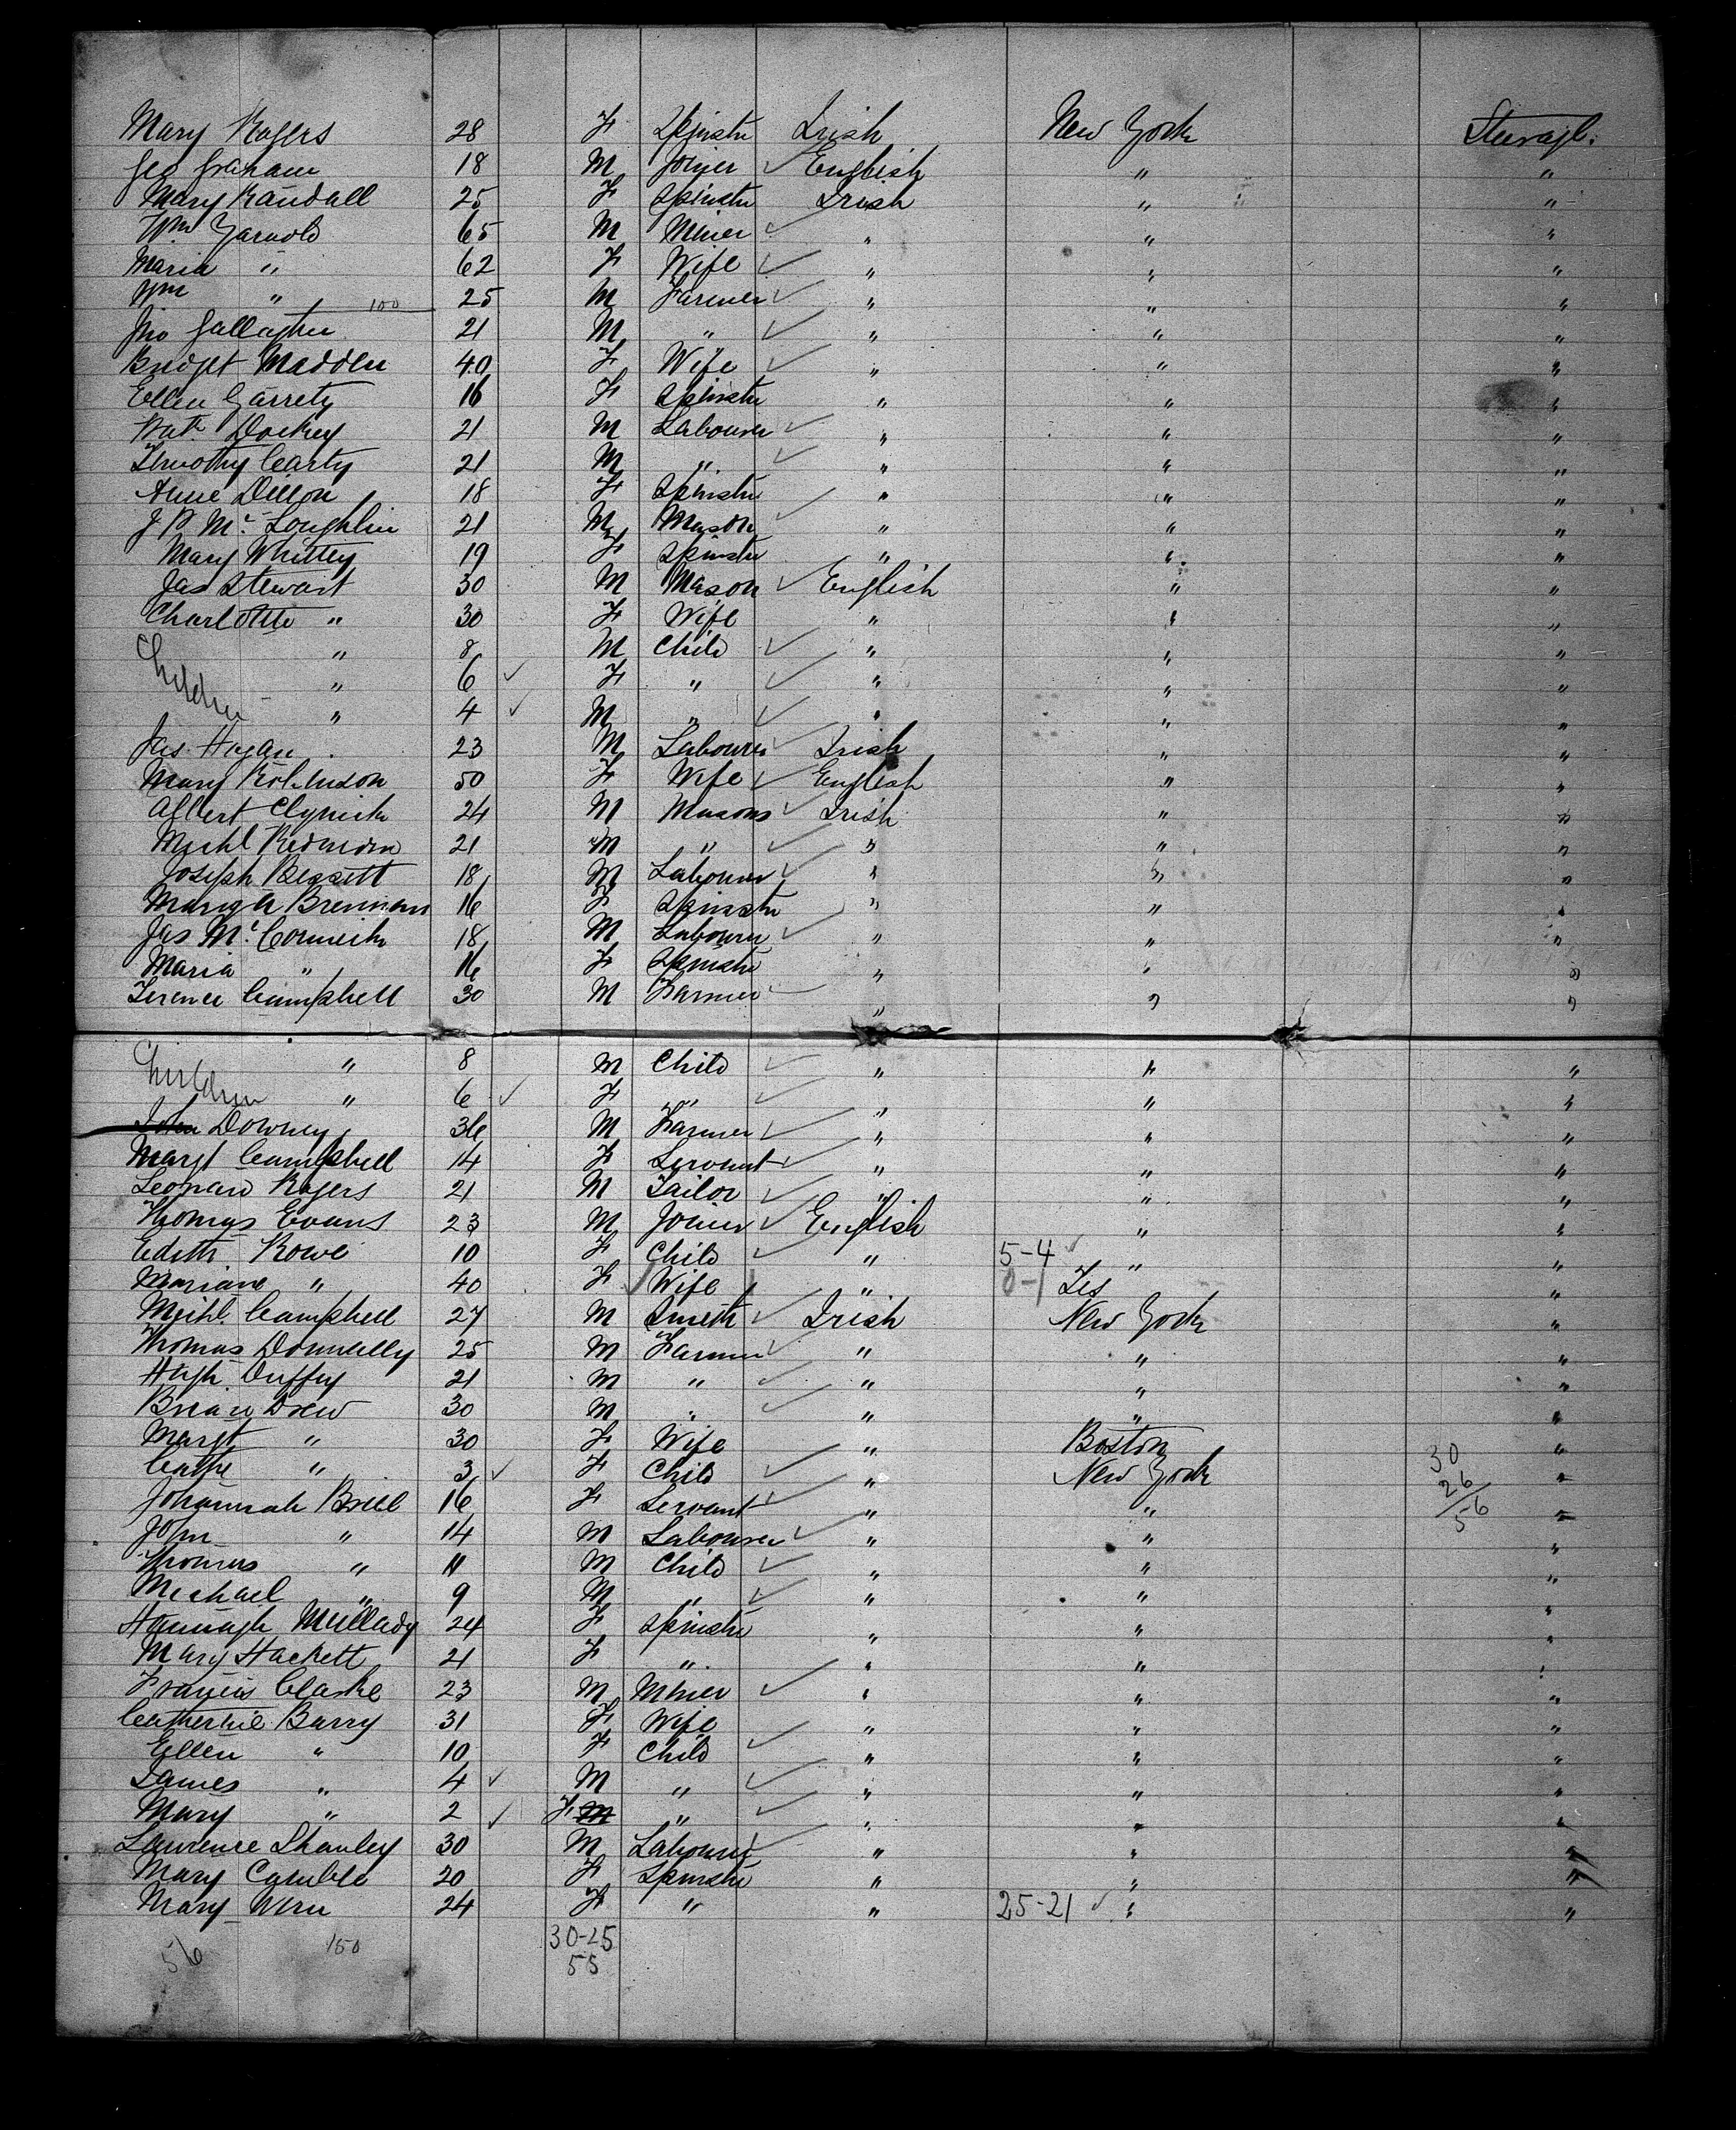 Mary Rogers 28 F Spinster Irish New York Steerage.
Geo Graham 18 M Joiner ✓ English " "
Mary Randall 25 F Spinster Irish " "
Wm Yarnold 65 M Miner ✓ " " "
Maria " 62 F Wife ✓ " " "
Wm " 100 25 M Farmer ✓ " " "
Jno Gallagher 21 M " ✓ " " "
Bridget Madden 40 F Wife ✓ " " "
Ellen Garrety 16 F Spinster " " "
Patk Dockey 21 M Labourer ✓ " " "
Timothy Carty 21 M " ✓ " " "
Anne Dillon 18 F Spinster " " "
J P McLoughlin 21 M Mason ✓ " " "
Mary Whittey 19 F Spinster " " "
Jas Stewart 30 M Mason ✓ English " "
Charlotte " 30 F Wife " " "
Children " 8 M Child ✓ " " "
" 6 ✓ F " ✓ " " "
" 4 ✓ M " ✓ " " "
Jas Hogan 23 M Labourer ✓ Irish " "
Mary Robinson 50 F Wife ✓ English " "
Albert 24 M Masons ✓ Irish " "
Michl Redmond 21 M " ✓ " " "
Joseph Bessett 18 M Labourer ✓ " " "
Brennan 16 F Spinster " " "
Jas McCormick 18 M Labourer ✓ " " "
Maria " 16 F Spinster " " "
Terence Campbell 30 M Farmer " " "
Children " 8 M Child ✓ " " "
" 6 ✓ F " ✓ " " "
John Downey 36 M Farmer ✓ " " "
Margt Campbell 14 F Servant ✓ " " "
Leonard Rogers 21 M Tailor ✓ " " "
Thomas Evans 23 M Joiner ✓ English " "
Edith Rowe 10 F Child ✓ " 5-4 ✓ " "
Mariane " 40 F ✓ Wife " 0-1 "
Michl Campbell 27 M Smith ✓ Irish New York "
Thomas Donnelly 25 M Farmer ✓ " " "
Hugh Duffy 21 M " ✓ " " "
Brian Drew 30 M " ✓ " " "
Margt " 30 F Wife " Boston "
Cathe " 3 ✓ F Child ✓ " New York 30 "
Johannah Briel 16 F Servant ✓ " " 26 "
John " 14 M Labourer ✓ " " 56 "
Thomas " 11 M Child ✓ " " "
Michael " 9 M " ✓ " " "
Hannagh Mullady 24 F Spinster " " "
Mary Hackett 21 F " " " "
Francis Clarke 23 M Miner ✓ " " "
Catherine Barry 31 F Wife " " "
Ellen " 10 F Child ✓ " " "
James " 4 ✓ M " ✓ " " "
Mary " 2 ✓ F M " ✓ " " "
Lawrence Shanley 30 M Labourer ✓ " " "
Mary 20 F Spinster " " "
Mary 24 F " " 25-21 ✓ " "
56 150 30-25
55